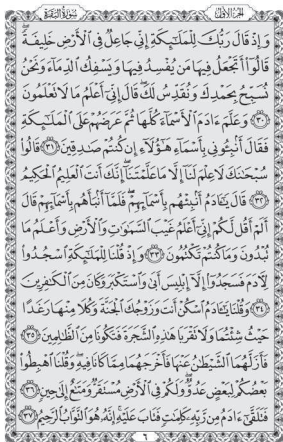 سُورَةُ البَقَرَةِ
الجُزْءُ الأَوَّلُ
وَإِذْ قَالَ رَبُّكَ لِلْمَلَٰٓئِكَةِ إِنِّى جَاعِلٌ فِى ٱلْأَرْضِ خَلِيفَةً
قَالُوٓا۟ أَتَجْعَلُ فِيهَا مَن يُفْسِدُ فِيهَا وَيَسْفِكُ ٱلدِّمَآءَ وَنَحْنُ
نُسَبِّحُ بِحَمْدِكَ وَنُقَدِّسُ لَكَ ۖ قَالَ إِنِّىٓ أَعْلَمُ مَا لَا تَعْلَمُونَ
٣٠ وَعَلَّمَ ءَادَمَ ٱلْأَسْمَآءَ كُلَّهَا ثُمَّ عَرَضَهُمْ عَلَى ٱلْمَلَٰٓئِكَةِ
فَقَالَ أَنۢبِـُٔونِى بِأَسْمَآءِ هَٰٓؤُلَآءِ إِن كُنتُمْ صَٰدِقِينَ ٣١ قَالُوا۟
سُبْحَٰنَكَ لَا عِلْمَ لَنَآ إِلَّا مَا عَلَّمْتَنَآ ۖ إِنَّكَ أَنتَ ٱلْعَلِيمُ ٱلْحَكِيمُ
٣٢ قَالَ يَٰٓـَٔادَمُ أَنۢبِئْهُم بِأَسْمَآئِهِمْ ۖ فَلَمَّآ أَنۢبَأَهُم بِأَسْمَآئِهِمْ قَالَ
أَلَمْ أَقُل لَّكُمْ إِنِّىٓ أَعْلَمُ غَيْبَ ٱلسَّمَٰوَٰتِ وَٱلْأَرْضِ وَأَعْلَمُ مَا
تُبْدُونَ وَمَا كُنتُمْ تَكْتُمُونَ ٣٣ وَإِذْ قُلْنَا لِلْمَلَٰٓئِكَةِ ٱسْجُدُوا۟
لِـَٔادَمَ فَسَجَدُوٓا۟ إِلَّآ إِبْلِيسَ أَبَىٰ وَٱسْتَكْبَرَ وَكَانَ مِنَ ٱلْكَٰفِرِينَ
٣٤ وَقُلْنَا يَٰٓـَٔادَمُ ٱسْكُنْ أَنتَ وَزَوْجُكَ ٱلْجَنَّةَ وَكُلَا مِنْهَا رَغَدًا
حَيْثُ شِئْتُمَا وَلَا تَقْرَبَا هَٰذِهِ ٱلشَّجَرَةَ فَتَكُونَا مِنَ ٱلظَّٰلِمِينَ ٣٥
فَأَزَلَّهُمَا ٱلشَّيْطَٰنُ عَنْهَا فَأَخْرَجَهُمَا مِمَّا كَانَا فِيهِ ۖ وَقُلْنَا ٱهْبِطُوا۟
بَعْضُكُمْ لِبَعْضٍ عَدُوٌّ ۖ وَلَكُمْ فِى ٱلْأَرْضِ مُسْتَقَرٌّ وَمَتَٰعٌ إِلَىٰ حِينٍ ٣٦
فَتَلَقَّىٰٓ ءَادَمُ مِن رَّبِّهِۦ كَلِمَٰتٍ فَتَابَ عَلَيْهِ ۚ إِنَّهُۥ هُوَ ٱلتَّوَّابُ ٱلرَّحِيمُ ٣٧
٦